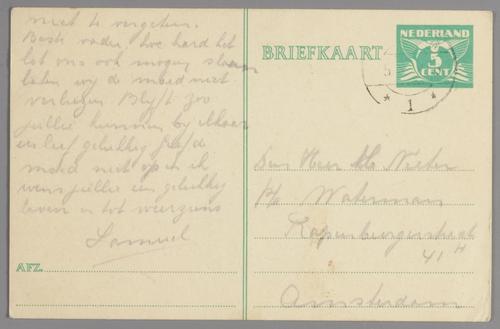 niet te vergeten.
Beste vader, hoe hard het
lot ons ook mogen slaan
laten wij de moed niet
verliezen. Blijft zoo
jullie kunnen by elkaar
en leef gelukkig
moed niet op en ik
wens jullie een gelukkig
leven en tot weerziens
Samuel
AFZ.
BRIEFKAART
NEDERLAND
5
CENT
* 1 *
Den Heer Nieter
p/a Waterman
Rapenburgerstraat
41 H
Amsterdam